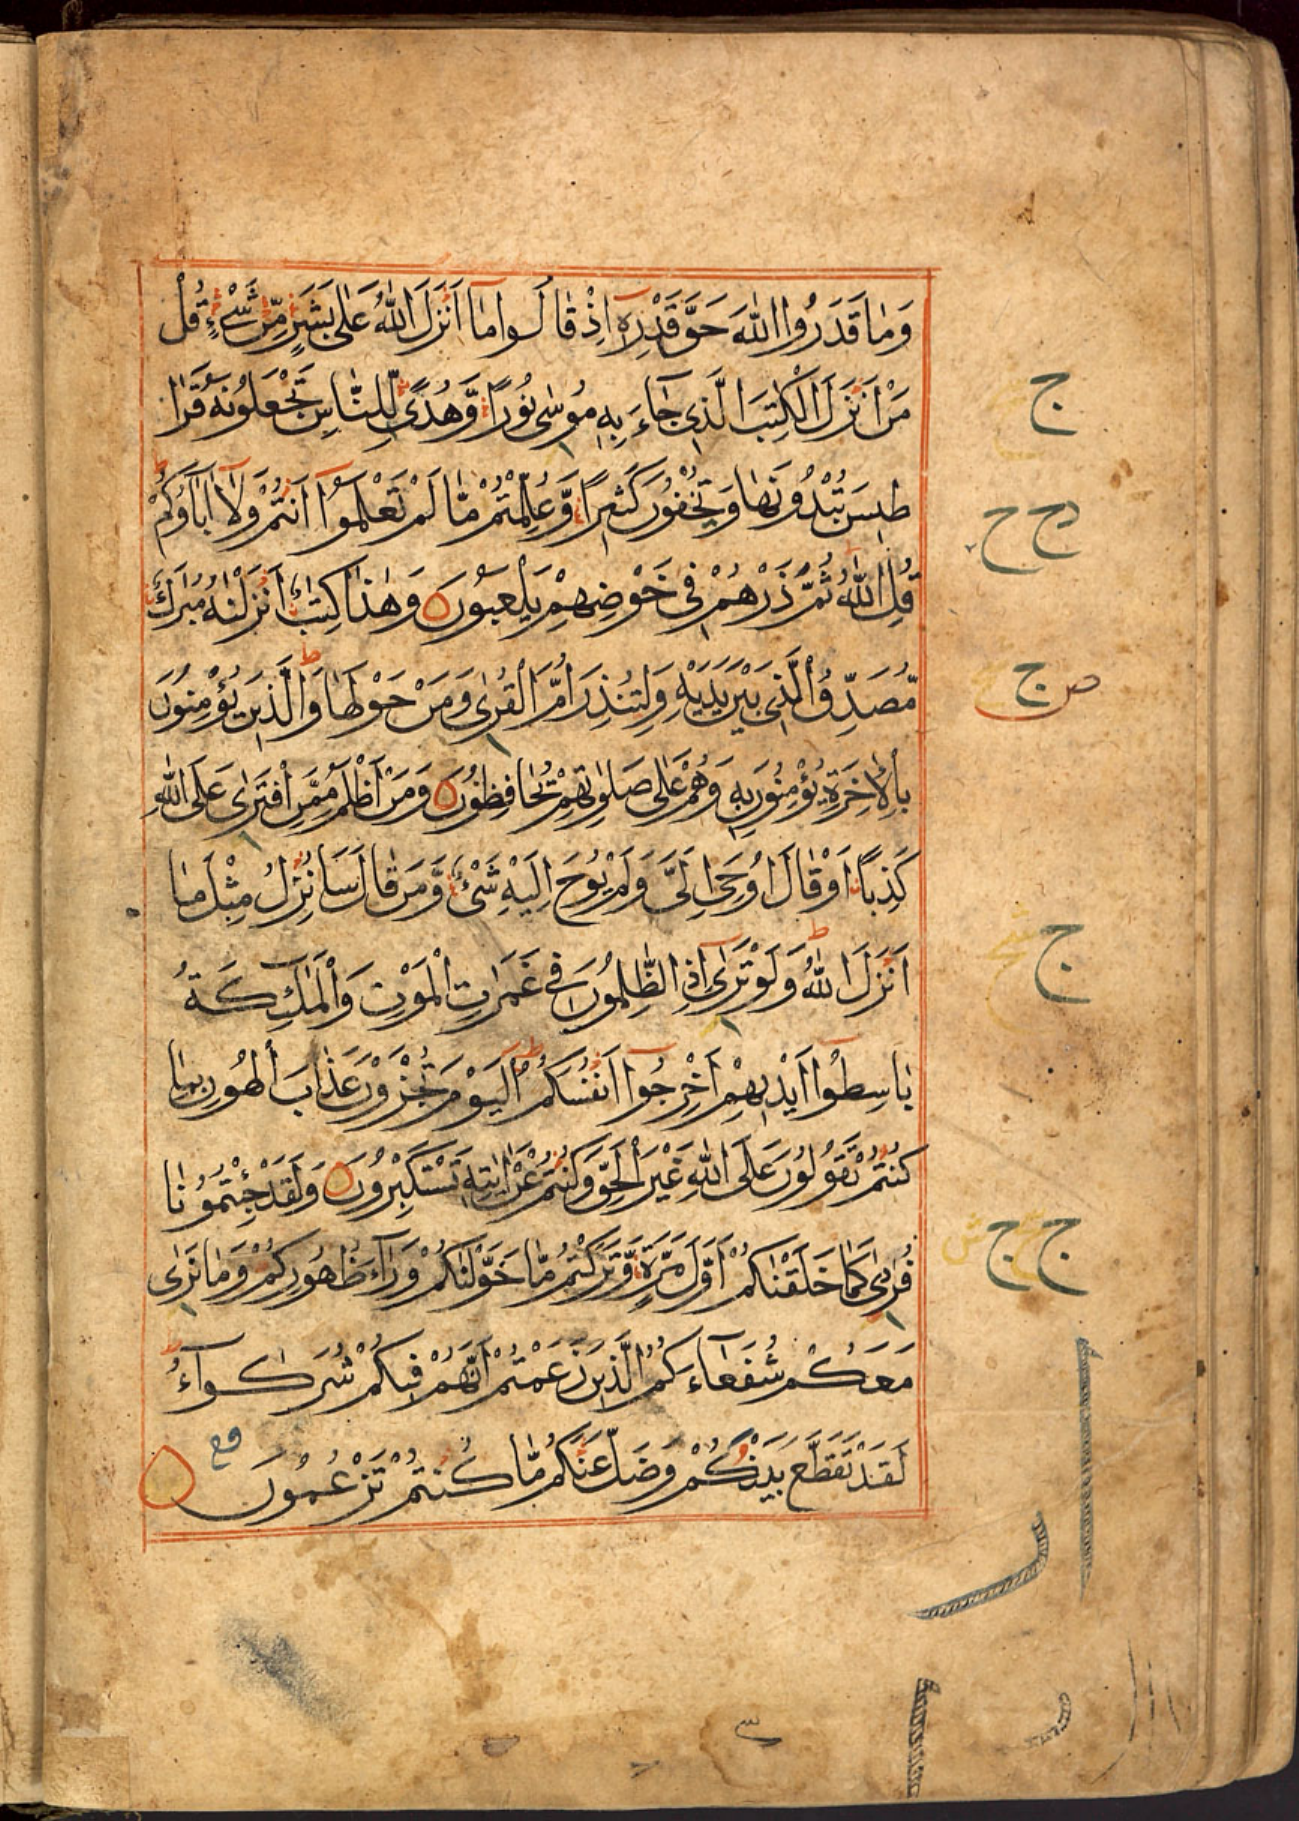 وَمَا قَدَرُوا اللّٰهَ حَقَّ قَدْرِهٖٓ اِذْ قَالُوا مَآ اَنْزَلَ اللّٰهُ عَلٰى بَشَرٍ مِّنْ شَىْءٍ قُلْ
مَنْ اَنْزَلَ الْكِتٰبَ الَّذِى جَآءَ بِهٖ مُوسٰى نُورًا وَّهُدًى لِّلنَّاسِ تَجْعَلُونَهٗ قَرَا
طِيسَ تُبْدُونَهَا وَتُخْفُونَ كَثِيرًا وَّعُلِّمْتُمْ مَّا لَمْ تَعْلَمُوٓا اَنْتُمْ وَلَآ اٰبَآؤُكُمْ ط
قُلِ اللّٰهُ ثُمَّ ذَرْهُمْ فِى خَوْضِهِمْ يَلْعَبُونَ ۝ وَهٰذَا كِتٰبٌ اَنْزَلْنٰهُ مُبٰرَكٌ
مُّصَدِّقُ الَّذِى بَيْنَ يَدَيْهِ وَلِتُنْذِرَ اُمَّ الْقُرٰى وَمَنْ حَوْلَهَا ط وَالَّذِينَ يُؤْمِنُونَ
بِالْاٰخِرَةِ يُؤْمِنُونَ بِهٖ وَهُمْ عَلٰى صَلَوٰتِهِمْ يُحَافِظُونَ ۝ وَمَنْ اَظْلَمُ مِمَّنِ افْتَرٰى عَلَى اللّٰهِ
كَذِبًا اَوْ قَالَ اُوحِىَ اِلَىَّ وَلَمْ يُوحَ اِلَيْهِ شَىْءٌ وَّمَنْ قَالَ سَاُنْزِلُ مِثْلَ مَآ
اَنْزَلَ اللّٰهُ ط وَلَوْ تَرٰٓى اِذِ الظّٰلِمُونَ فِى غَمَرٰتِ الْمَوْتِ وَالْمَلٰٓئِكَةُ
بَاسِطُوٓا اَيْدِيهِمْ اَخْرِجُوٓا اَنْفُسَكُمْ ط اَلْيَوْمَ تُجْزَوْنَ عَذَابَ الْهُونِ بِمَا
كُنْتُمْ تَقُولُونَ عَلَى اللّٰهِ غَيْرَ الْحَقِّ وَكُنْتُمْ عَنْ اٰيٰتِهٖ تَسْتَكْبِرُونَ ۝ وَلَقَدْ جِئْتُمُونَا
فُرَادٰى كَمَا خَلَقْنَاكُمْ اَوَّلَ مَرَّةٍ وَّتَرَكْتُمْ مَّا خَوَّلْنَاكُمْ وَرَآءَ ظُهُورِكُمْ وَمَا نَرٰى
مَعَكُمْ شُفَعَآءَكُمُ الَّذِينَ زَعَمْتُمْ اَنَّهُمْ فِيكُمْ شُرَكٰٓوءُا
لَقَدْ تَقَطَّعَ بَيْنَكُمْ وَضَلَّ عَنْكُمْ مَّا كُنْتُمْ تَزْعُمُونَ ۝
ج
ج
ص ج
ج
ج ج